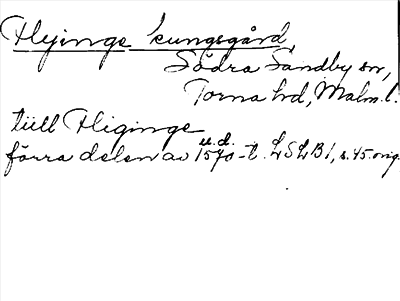 Flyinge kungsgård,
Södra Sandby sn,
Torna hd, Malm. l.
tiill Fliginge
u. d.
förra delen av 1570-t. LSLB 1, s. 45. orig.